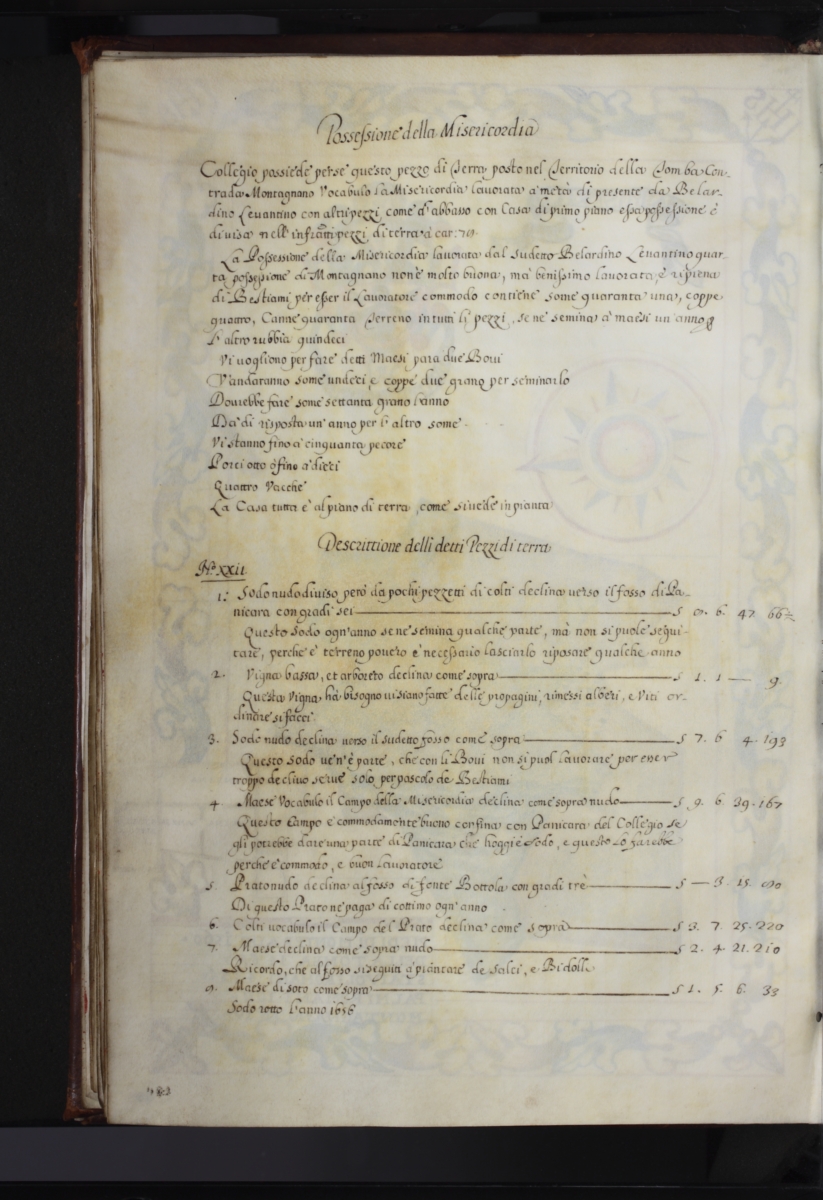 Possessione della Misericordia
Collegio possiede per se questo pezzo di Terra posto nel Territorio della Tomba Con-
trada Montagnano Vocabulo La Misericordia lavorata a metà di presente da Belar-
dino Levantino con altri pezzi come d'abbasso con Casa di primo piano essa possessione è
divisa nell'infratti pezzi di terra à car: 70.
La Possessione della Misericordia lavorata dal sudetto Belardino Levantino quar-
ta possessione di Montagnano non è molto buona, ma benissimo lavorata, è ripiena
di Bestiami per esser il Lavoratore commodo contiene some quaranta una, coppe
quattro, Canne quaranta Terreno in tutti li pezzi, se ne semina à maesi un'anno p
l'altro rubbia quindeci
Vi vogliono per fare detti Maesi para due Bovi
V'andaranno some undeci, e coppe due grano per seminarlo
Dovrebbe fare some settanta grano l'anno
Dà di risposta un'anno per l'altro some
Vi stanno fino a cinquanta pecore
Porci otto ò fino a dieci
Quattro Vacche
La Casa tutta è al piano di terra, come si vede in pianta
Descrittione delli detti Pezzi di terra
No. XXII
1: Sodo nudo diviso però da pochi pezzetti di colti declina verso il fosso di Pa-
nicara con gradi sei S 8. 6. 47. 66
Questo Sodo ogn'anno se ne semina qualche parte, mà non si puole sequi-
tare, perche è terreno povero è necessario lasciarlo riposare qualche anno
2. Vigna bassa, et arboreto declina come sopra S 1. 1 — 9.
Questa Vigna hà bisogno vi siano fatte delle propagini, rimessi alberi, e Viti or-
dinare si facci
3. Sodo nudo declina verso il sudetto fosso come sopra S 7. 6 4. 193
Questo Sodo ve n'è parte, che con li Bovi non si puol lavorare per esser
troppo declivo serve solo per pascolo de Bestiami
4. Maese Vocabulo il Campo della Misericordia declina come sopra nudo S 9. 6. 39. 167
Questo Campo è commodamente buono confina con Panicara del Collegio se
gli potrebbe dare una parte di Panicara che hoggi è Sodo, e questo lo farebbe
perche è commodo, e buon Lavoratore
5. Prato nudo declina al fosso di fonte Bottola con gradi trè S — 3. 15. 80
Di questo Prato ne paga di cottimo ogn'anno
6. Colti vocabulo il Campo del Prato declina come sopra S 3. 7. 25. 220
7. Maese declina come sopra nudo S 2. 4. 21. 210
Ricordo, che al fosso si seguiti à piantare de Salci, e Bidolli
8. Maese di soto come sopra S 1. 5. 6. 33
Sodo rotto l'anno 1656